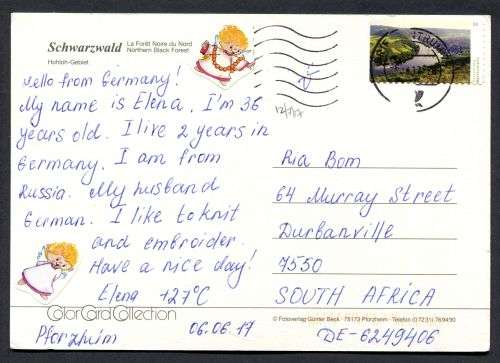 Schwarzwald
La Forêt Noire du Nord
Northern Black Forest
Hohloh-Gebiet
Hello from Germany!
My name is Elena. I'm 36
years old. I live 2 years in
Germany. I am from
Russia. My husband
German. I like to knit
and embroider.
Have a nice day!
Elena +27°C
ColorCardCollection
Pforzheim 06.06.17
Ria Bom
64 Murray Street
Durbanville
7550
SOUTH AFRICA
© Fotoverlag Günter Beck · 75173 Pforzheim · Telefon (07231) 769490
DE-6249406